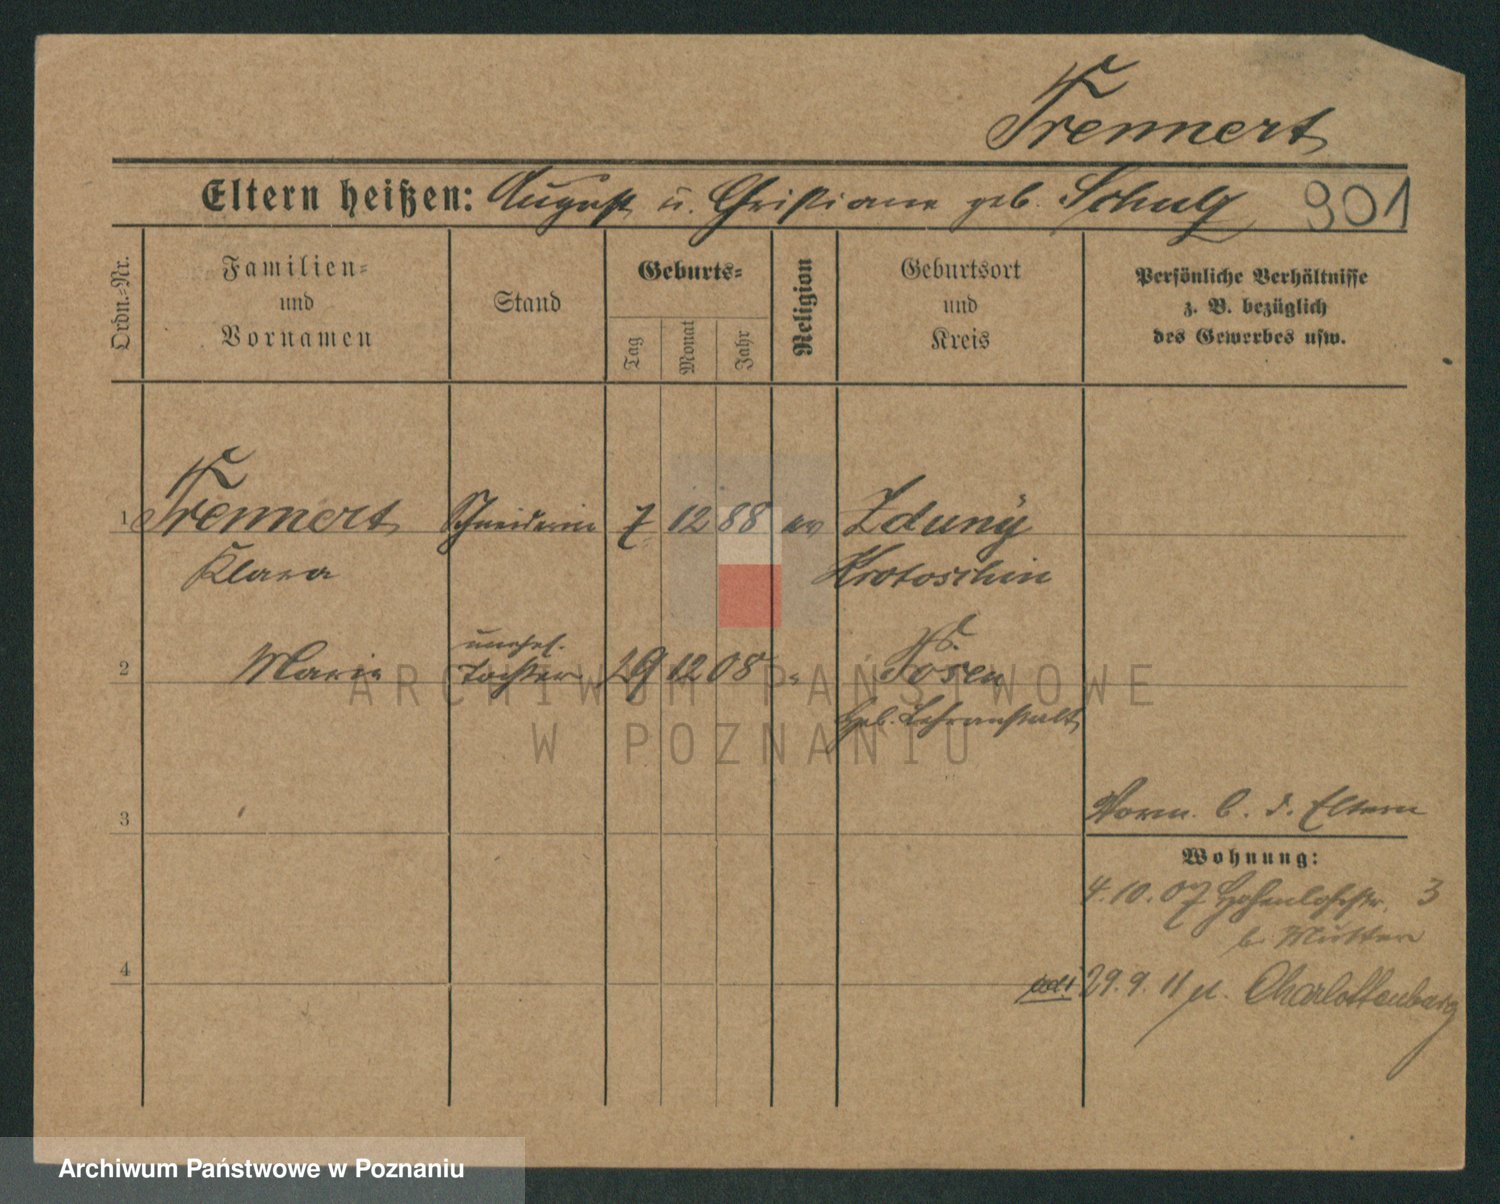 Trennert
Eltern heißen: August u. Christiane geb. Schulz 901
Ordn.-Nr.
Familien-
und
Vornamen
Stand
Geburts-
Tag
Monat
Jahr
Religion
Geburtsort
und
Kreis
Persönliche Verhältnisse
z. B. bezüglich
des Gewerbes usw.
1 Trennert Schneiderin 7 12 88 ev Zduny
Klara Krotoschin
unehel.
2 Marie Tochter 29 12 08 " Posen
Heb. Lehranstalt
ARCHIWUM PAŃSTWOWE
W POZNANIU
3
Vorm. b. d. Eltern
Wohnung:
4.10.07 Hohenlohestr. 3
b. Mutter
4
29.9.11 n. Charlottenburg
Archiwum Państwowe w Poznaniu